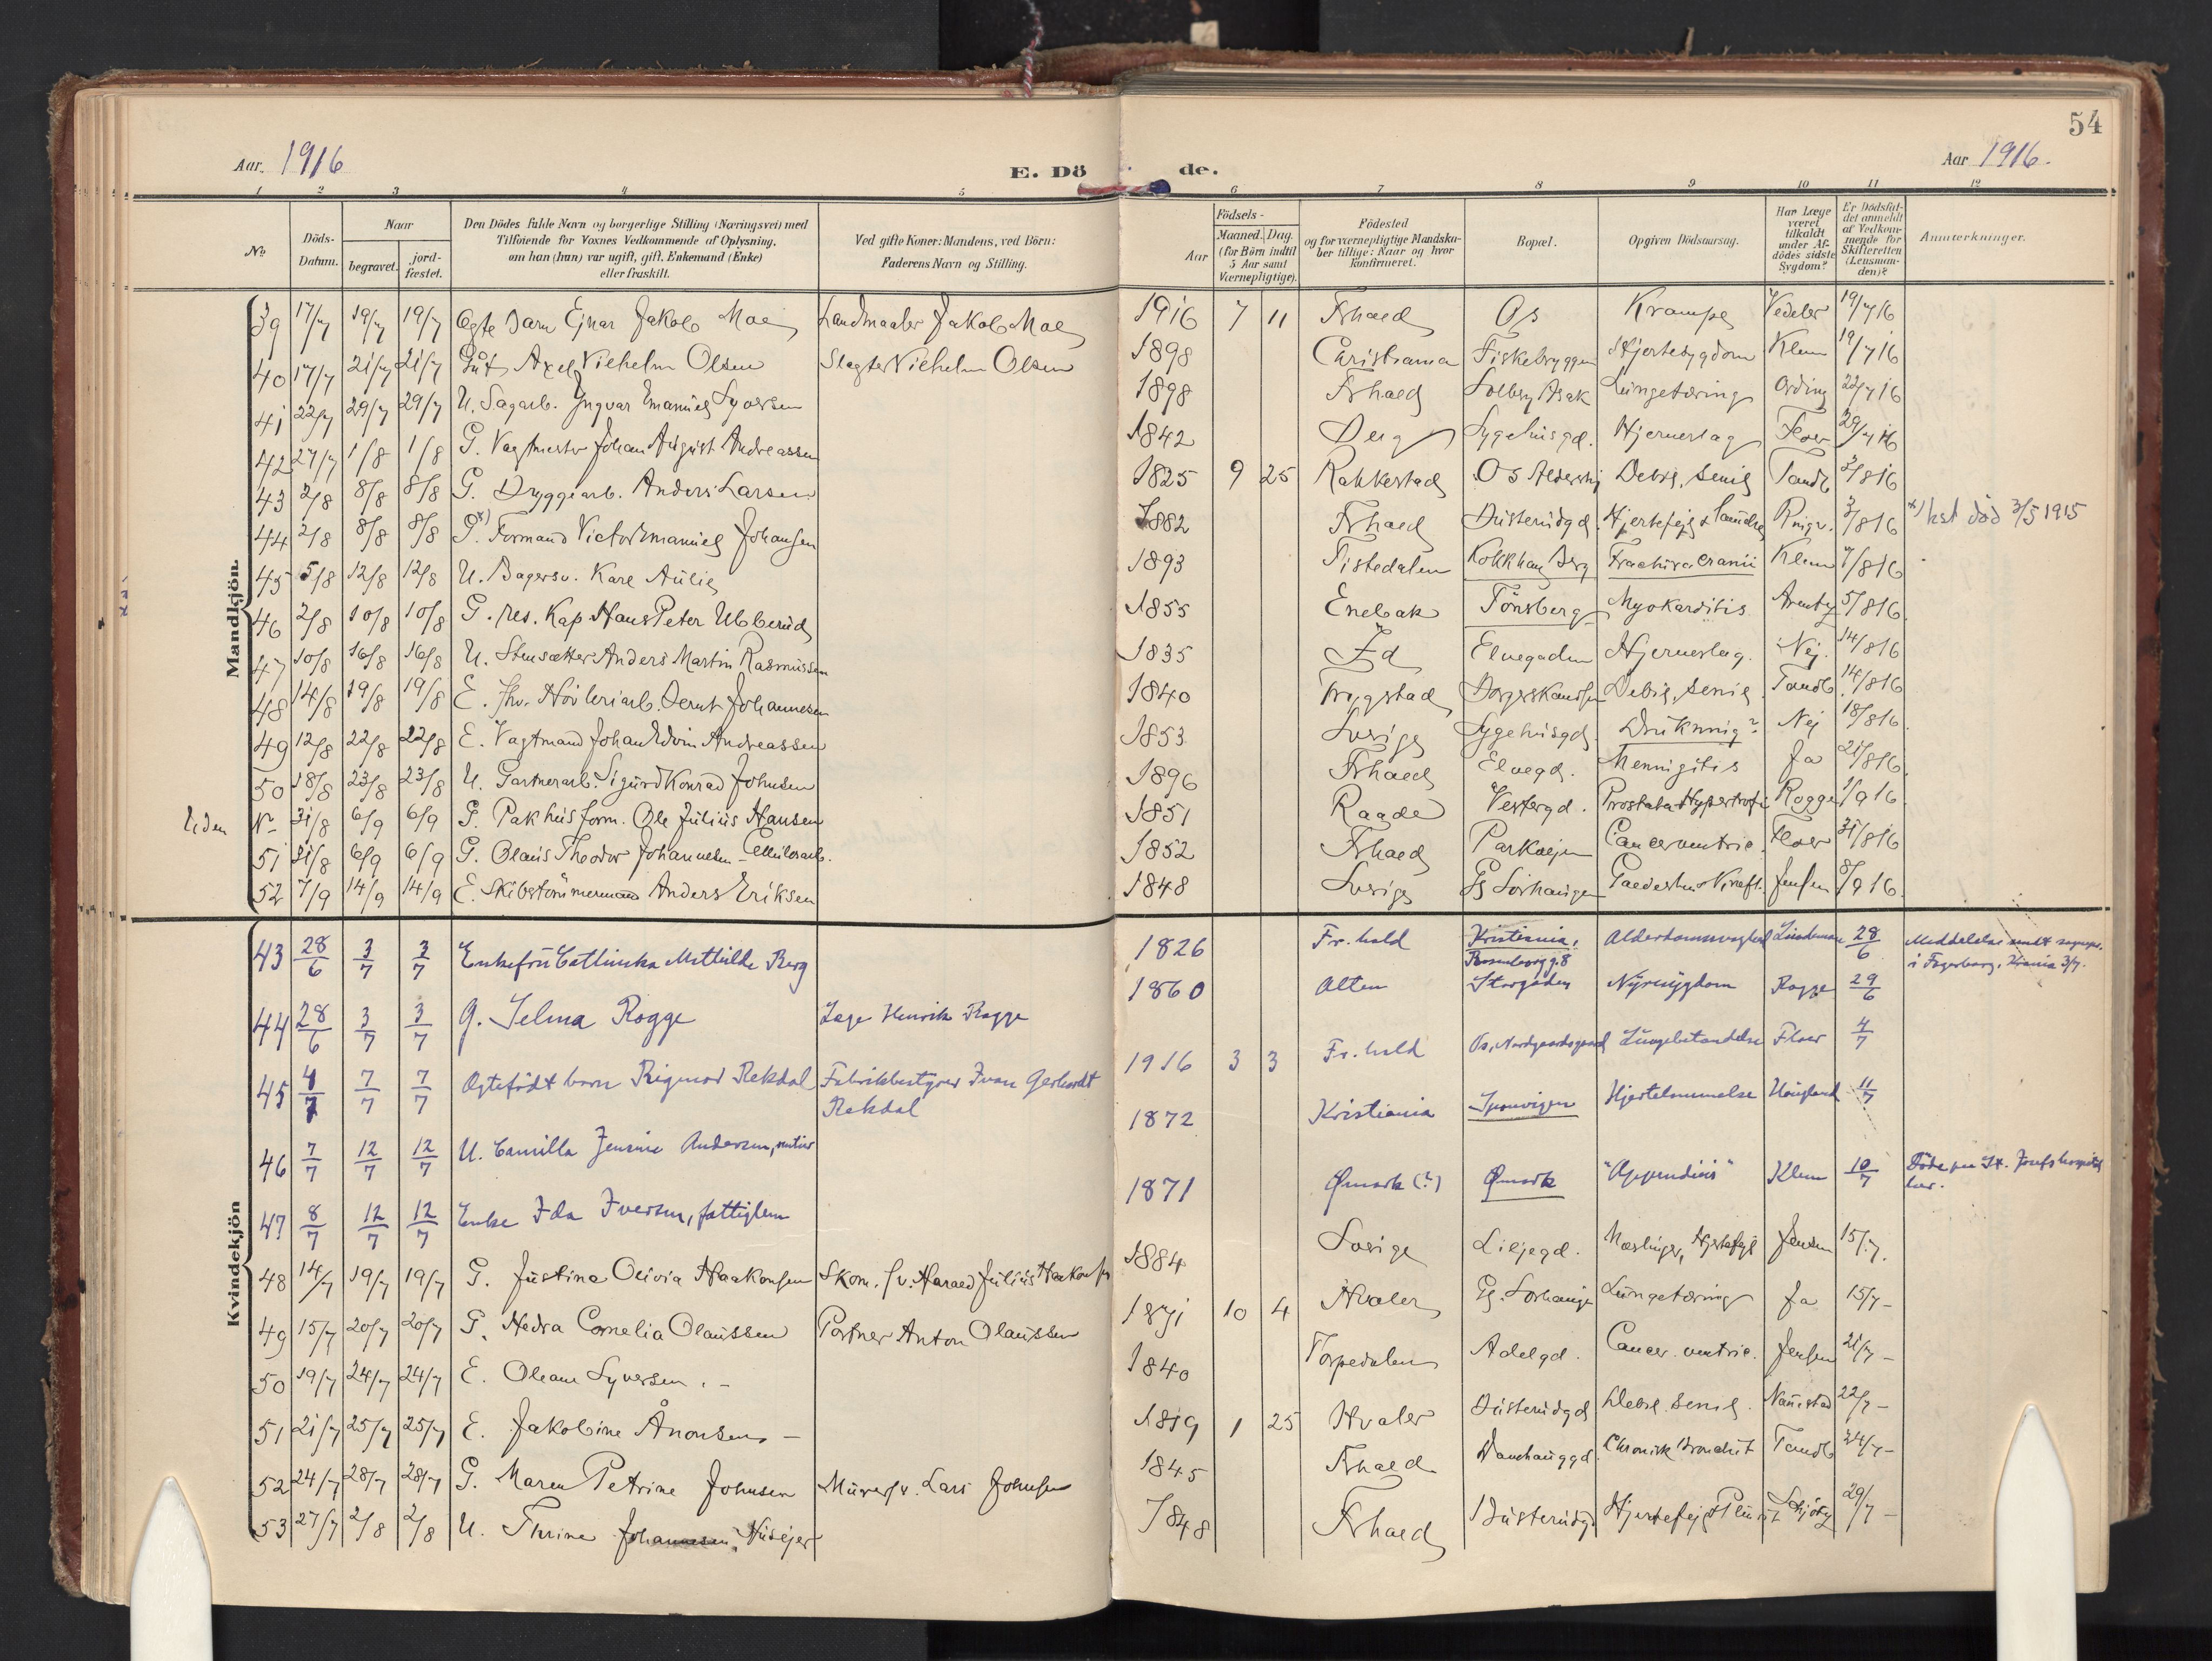 54
Aar. 1916
E. Dö
de.
Aar 1916.
1 2 3 4 5 6 7 8 9 10 11 12
No.
Döds-
Datum.
Naar
begravet.
jord-
fæstet.
Den Dödes fulde Navn og borgerlige Stilling (Næringsvei) med
Tilföiende for Voxnes Vedkommende af Oplysning,
om han (hun) var ugift, gift, Enkemand (Enke)
eller fraskilt.
Ved gifte Koner: Mandens, ved Börn:
Faderens Navn og Stilling.
Födsels-
Aar
Maaned. Dag.
(for Börn indtil
5 Aar samt
Værnepligtige).
Födested
og for værnepligtige Mandska-
ber tillige: Naar og hvor
konfirmeret.
Bopæl.
Opgiven Dödsaarsag.
Har Læge
været
tilkaldt
under Af-
dödes sidste
Sygdom?
Er Dödsfal-
det anmeldt
af Vedkom-
mende for
Skifteretten
(Lensman-
den)?
Anmærkninger.
Mandkjön.
39 17/7 19/7 19/7 Ægte Barn Ejnar Jakob Moe Landmaaler Jakob Moe 1916 7 11 Frhald Os Krampe Vedeler 19/7 16
40 17/7 21/7 21/7 Gut Axel Vilhelm Olsen Slagter Vilhelm Olsen 1898 Christiania Fiskebryggen Hjertesygdom Klem 19/7 16
41 22/7 29/7 29/7 U. Sagarb. Yngvar Emanuel Syversen 1898 Frhald Solberg Asak Lungetæring Ording 22/7 16
42 27/7 1/8 1/8 G. Vagtmester Johan August Andreassen 1842 Berg Sygehusgd. Hjerneslag Floer 29/7 16
43 2/8 8/8 8/8 G. Bryggearb. Anders Larsen 1825 9 25 Rakkestad Os Aldershj Debil. senil Tandb 3/8 16
44 2/8 8/8 8/8 G. x) Formand Victor Emanuel Johansen 1882 Frhald Busterudgd. Hjertefejl &  3/8 16 x) hst död 3/5 1915
45 5/8 12/8 12/8 U. Bagersv. Karl Aulie 1893 Tistedalen Kolkhaug Berg Fractura cranii Klem 7/8 16
46 2/8 10/8 10/8 G. res. Kap Hans Peter Ulleruds 1855 Enebak Tönsberg Myokarditis 5/8 16
47 10/8 16/8 16/8 U. Stensætter Anders Martin Rasmussen 1835 Id Elvegaden Hjerneslag. Nej. 14/8 16
48 14/8 19/8 19/8 E. fhv. Hövleriarb. Bernt Johannesen 1840 Trygstad Borgerskandsen Debil. senil. Tandb 14/8 16
49 12/8 22/8 22/8 E. Vagtmand Johan Edvin Andreassen 1853 Sverige Sygehusgd. Drukning? Nej 18/8 16
50 18/8 23/8 23/8 U. Gartnerarb. Sigurd Konrad Johnsen 1896 Frhald Elvegd. Meningitis Ja 21/8 16
Uden No 31/8 6/9 6/9 G. Pakhusform. Ole Julius Hansen 1851 Raade Vestergd. Prostata Hypertrofi Rogge 1/9 16
51 31/8 6/9 6/9 G. Olaus Theodor Johannesen - Cellulosearb. 1852 Frhald Parkvejen Cancer ventric. Floer 31/8 16
52 7/9 14/9 14/9 E. Skibstömmermand Anders Eriksen 1848 Sverige Gs Sörhaugen Jensen 8/9 16
Kvindekjön
43 28/6 3/7 3/7 Enkefru Cathinka Mathilde Berg 1826 Fr.hald Kristiania, Rosenborgg. 8 Alderdomssvaghed Lindeman 28/6 Meddelelse sendt sognepr. i Fagerborg, Krania 3/7.
44 28/6 3/7 3/7 G. Selma Rogge Læge Henrik Rogge 1860 Alten Storgaden Nyresygdom Rogge 29/6
45 4/7 7/7 7/7 Ægtefödt barn Rigmor Rekdal Fabrikbestyrer Ivan Gerhardt Rekdal 1916 3 3 Fr.hald Os, Nordgaardsgaard Lungebetændelse Floer 4/7
46 7/7 12/7 12/7 U. Camilla Jensine Andersen, rentier 1872 Kristiania Sponvigen Hjertelammelse Haugland 11/7
47 8/7 12/7 12/7 Enke Ida Iversen, fattiglem 1871 Ømark (?) Ømark "Appendicis" Klem 10/7 Döde paa St. Josefs hospital her.
48 14/7 19/7 19/7 G. Justina Olivia Haakonsen Skom. sv. Harald Julius Haakonsen 1884 Sverige Liljegd. Mæslinger, Hjertefejl Jensen 15/7.
49 15/7 20/7 20/7 G. Hedva Cornelia Olaussen Portner Anton Olaussen 1871 10 4 Hvaler Gs. Sörhaugen Lungetæring Ja 15/7 -
50 19/7 24/7 24/7 E. Oleane Syversen. - 1840 Torpedalen Adelgd. Cancer. ventric. Jensen 21/7 -
51 21/7 25/7 25/7 E. Jakobine Ånonsen - 1819 1 25 Hvaler Busterudgd Debil. senil. Naustad 22/7 -
52 24/7 28/7 28/7 G. Maren Petrine Johnsen Murersv. Lars Johnsen 1845 Frhald Vandhauggd. Chronisk Bronchit Tandb 24/7 -
53 27/7 2/8 2/8 U. Thrine Johannesen, Husejer 1848 Frhald Busterudgd Hjertefejl & Pleurit 29/7 -